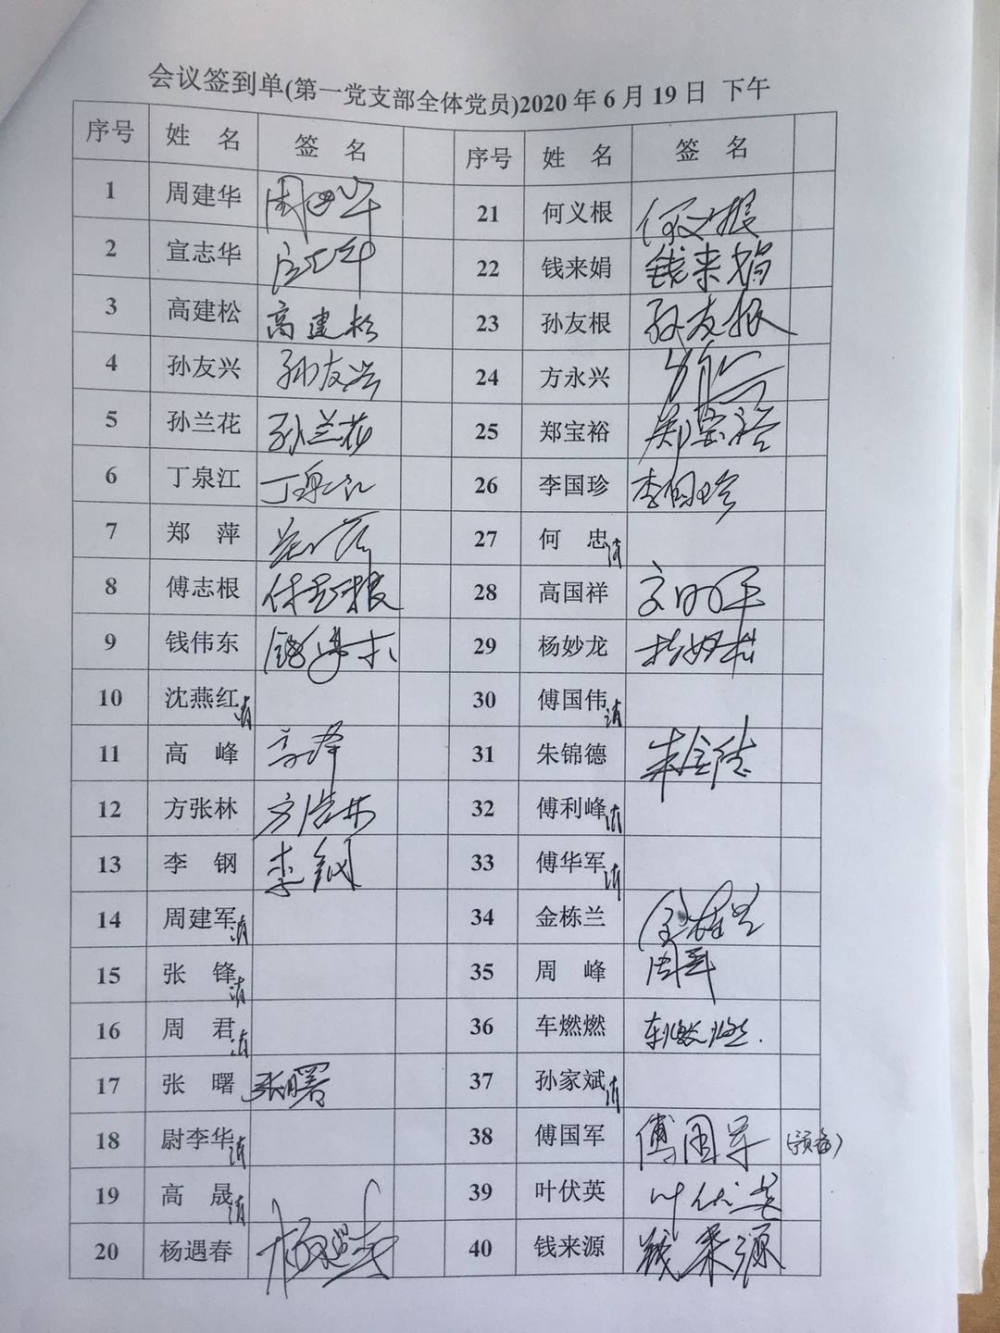 会议签到单(第一党支部全体党员)2020年6月19日 下午
序号 姓 名 签 名 序号 姓 名 签 名
1 周建华 周建华 21 何义根 何义根
2 宣志华 宣志华 22 钱来娟 钱来娟
3 高建松 高建松 23 孙友根 孙友根
4 孙友兴 孙友兴 24 方永兴
5 孙兰花 孙兰花 25 郑宝裕 郑宝裕
6 丁泉江 丁泉江 26 李国珍 李国珍
7 郑 萍 27 何 忠 请
8 傅志根 傅志根 28 高国祥
9 钱伟东 钱伟东 29 杨妙龙
10 沈燕红 请 30 傅国伟 请
11 高 峰 高峰 31 朱锦德 朱锦德
12 方张林 方张林 32 傅利峰 请
13 李 钢 李钢 33 傅华军 请
14 周建军 请 34 金栋兰 金栋兰
15 张 锋 请 35 周 峰 周峰
16 周 君 请 36 车燃燃 车燃燃.
17 张 曙 张曙 37 孙家斌 请
18 尉李华 请 38 傅国军 傅国军 (预备)
19 高 晟 请 39 叶伏英 叶伏英
20 杨遇春 杨遇春 40 钱来源 钱来源